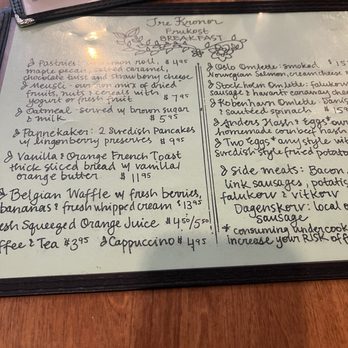 Tre Kronor
Frukost
BREAKFAST
Pastries: cinnamon roll, $4.95
maple pecan, salted caramel,
chocolate twist and strawberry cheese
Meusli: our own mix of dried
fruits, nuts & cereals with
yogurt or fresh fruit $7.95
Oatmeal served w/ brown sugar
& milk $5.95
Pannekaker: 2 Swedish Pancakes
w/ lingonberry preserves $9.95
Vanilla & Orange French Toast
thick sliced bread w/ vanilla/
orange butter $11.95
Belgian Waffle w/ fresh berries,
bananas & fresh whipped cream $13.95
esh Squeezed Orange Juice $4.50/5.50
ffee & Tea $3.95 Cappuccino $4.95
Oslo Omlette: smoked $15
Norwegian Salmon, cream cheese &
Stockholm Omlette: falukorv
sausage & havarti caraway chees
Kobenhavn Omlette: Danis
& sautéed spinach $15
Anders Hash & Eggs* our
homemade corn beef hash
Two Eggs* any style wit
Swedish style fried potato
Side meats: Bacon,
link sausages, potatis
falukorv & vitkorv
Dagenskorv: local o
sausage
* consuming undercook
increase your RISK of f